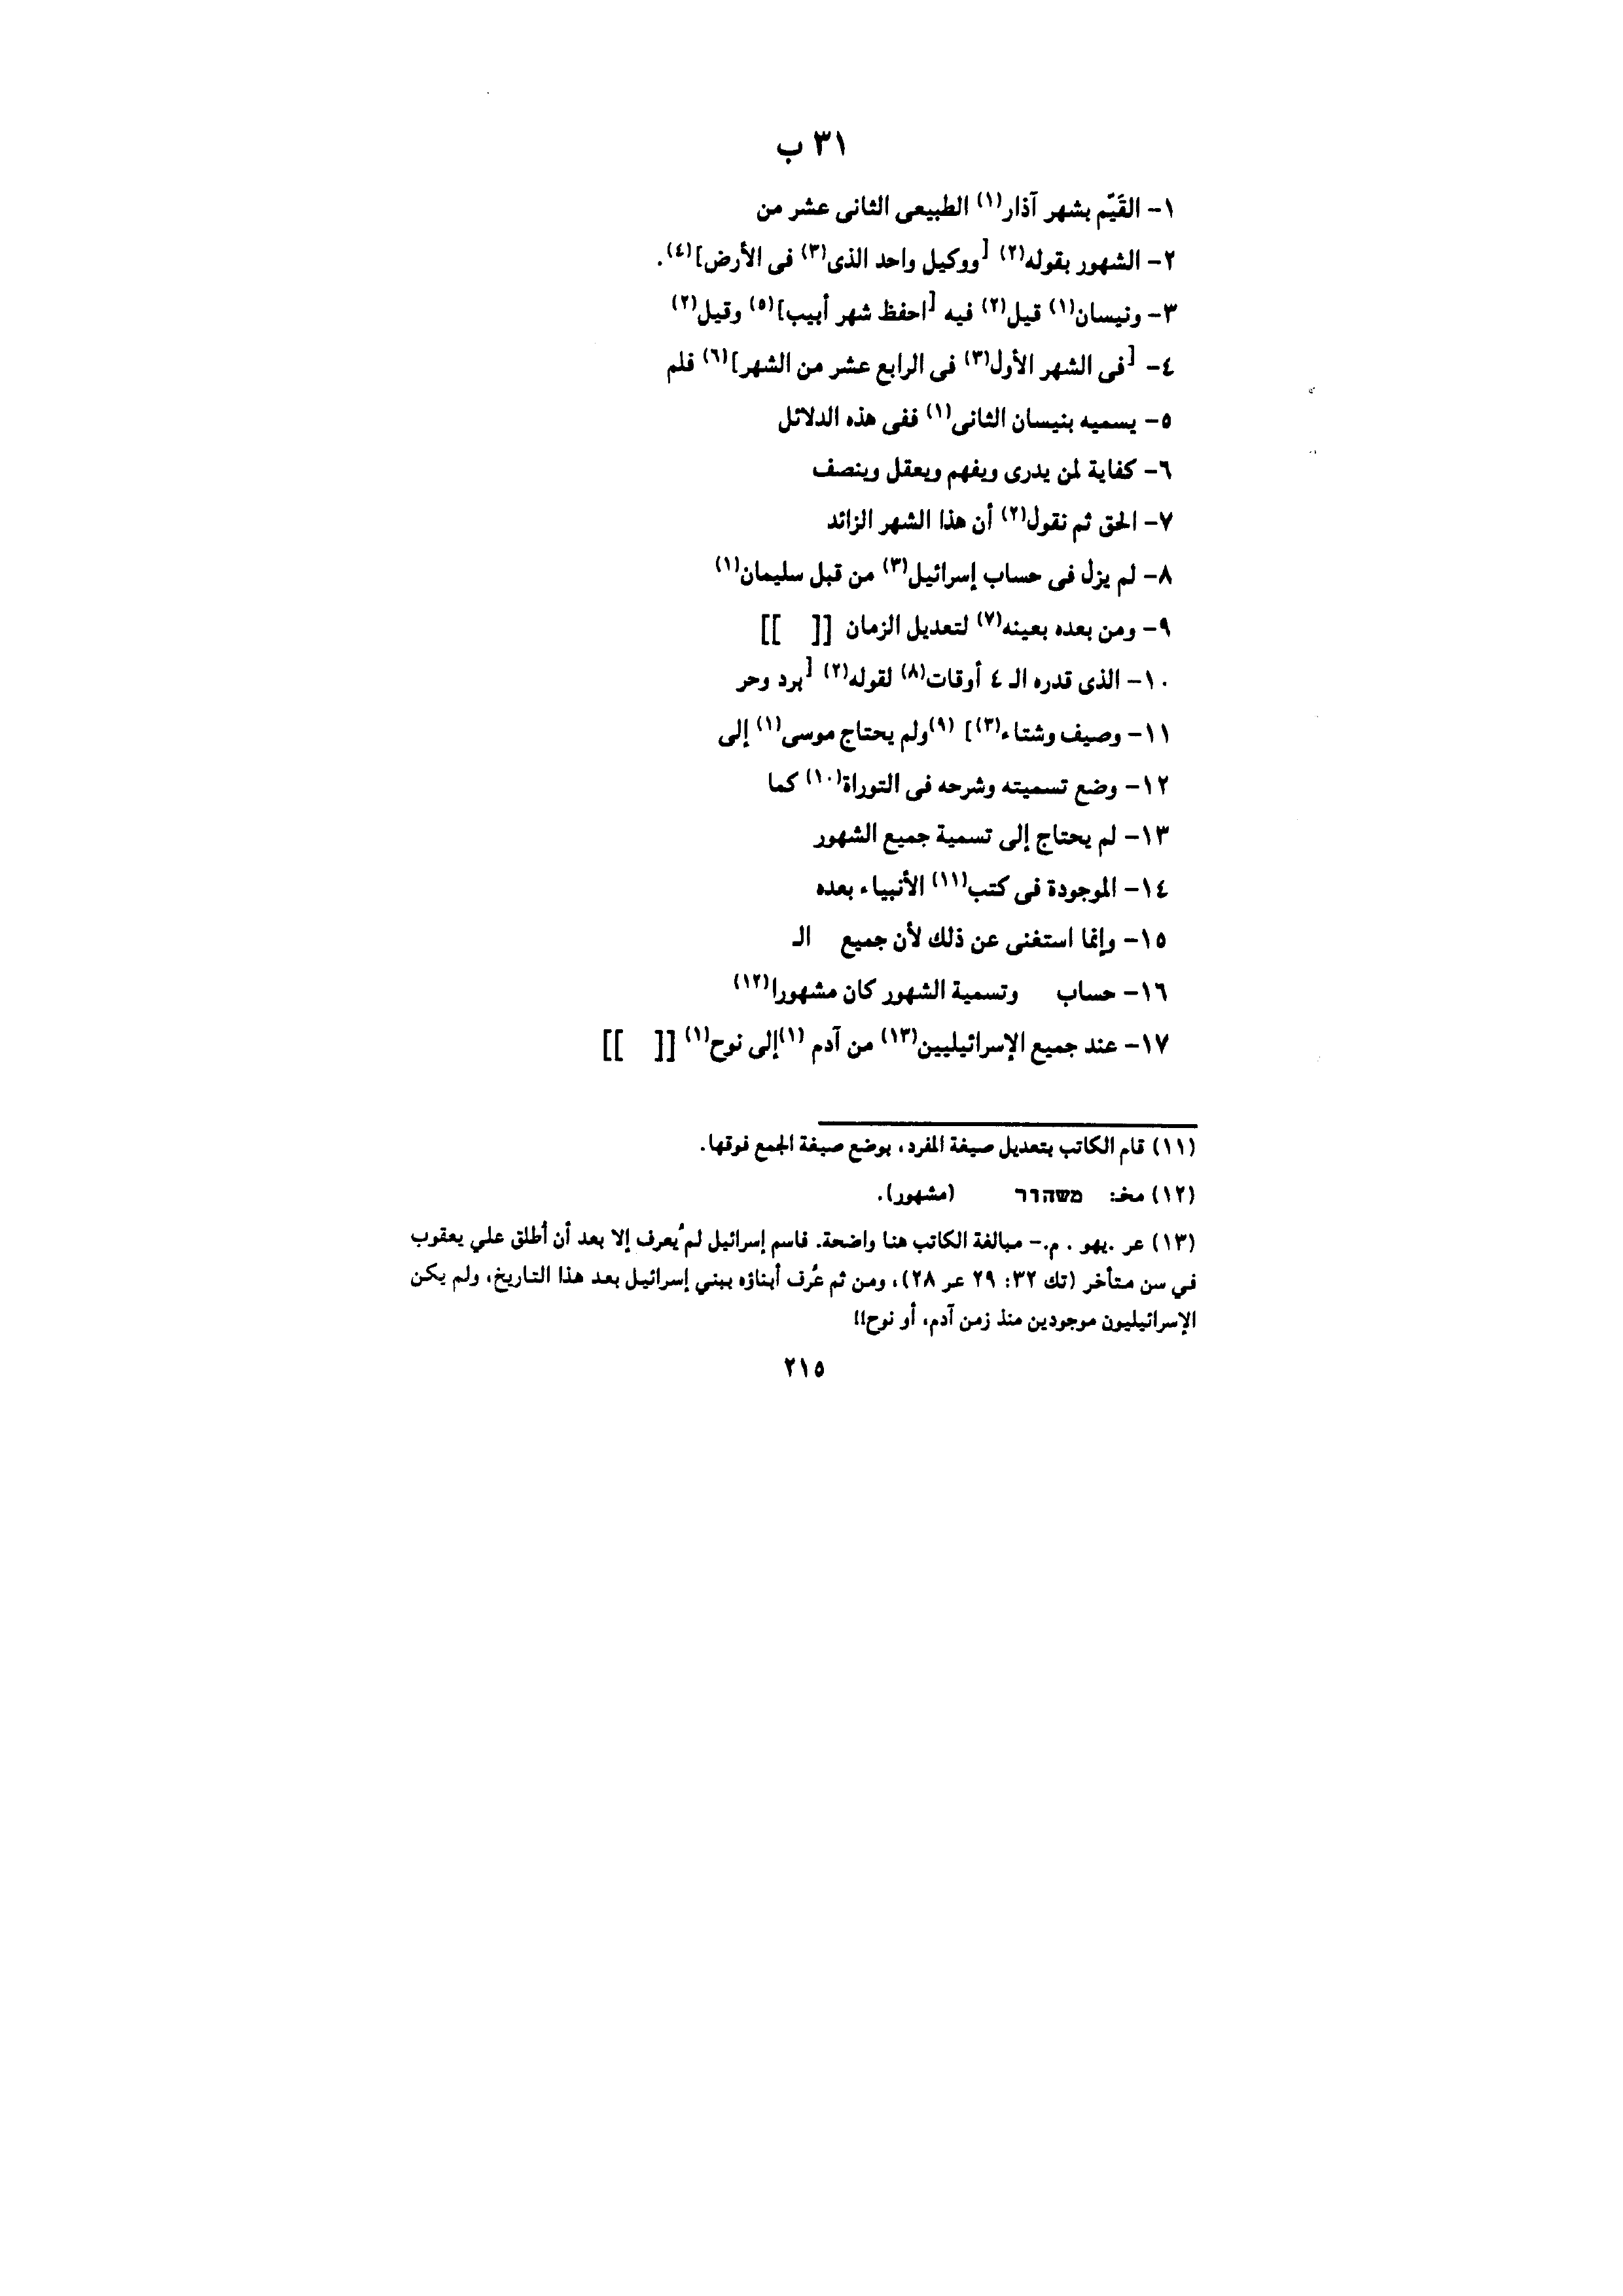 ٣١ ب
١- القَيّم بشهر آذار(١) الطبيعى الثانى عشر من
٢- الشهور بقوله(٢) [ووكيل واحد الذى(٣) فى الأرض](٤).
٣- ونيسان(١) قيل(٢) فيه [احفظ شهر أبيب](٥) وقيل(٢)
٤- [فى الشهر الأول(٣) فى الرابع عشر من الشهر](٦) فلم
٥- يسميه بنيسان الثانى(١) ففى هذه الدلائل
٦- كفاية لمن يدرى ويفهم ويعقل وينصف
٧- الحق ثم نقول(٢) أن هذا الشهر الزائد
٨- لم يزل فى حساب إسرائيل(٣) من قبل سليمان(١)
٩- ومن بعده بعينه(٧) لتعديل الزمان [[ ]]
١٠- الذى قدره الـ ٤ أوقات(٨) لقوله(٢) [برد وحر
١١- وصيف وشتاء(٣)] (٩)ولم يحتاج موسى(١) إلى
١٢- وضع تسميته وشرحه فى التوراة(١٠) كما
١٣- لم يحتاج إلى تسمية جميع الشهور
١٤- الموجودة فى كتب(١١) الأنبياء بعده
١٥- وإنما استغنى عن ذلك لأن جميع الـ
١٦- حساب وتسمية الشهور كان مشهورا(١٢)
١٧- عند جميع الإسرائيليين(١٣) من آدم (١)إلى نوح(١) [[ ]]
(١١) قام الكاتب بتعديل صيغة المفرد، بوضع صيغة الجمع فوقها.
(١٢) مخـ: משהור (مشهور).
(١٣) عر .يهو . م.- مبالغة الكاتب هنا واضحة. فاسم إسرائيل لم ُيعرف إلا بعد أن أطلق علي يعقوب
في سن متأخر (تك ٣٢: ٢٩ عر ٢٨)، ومن ثم عُرف أبناؤه ببني إسرائيل بعد هذا التاريخ، ولم يكن
الإسرائيليون موجودين منذ زمن آدم، أو نوح!!
٢١٥